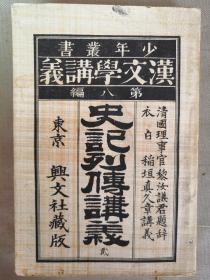 少年叢書
漢文學講義
第八編
清國理事官黎汝謙君題辞
衣白 稻垣真久章講義
史記列傳講義 貳
東京 興文社藏版